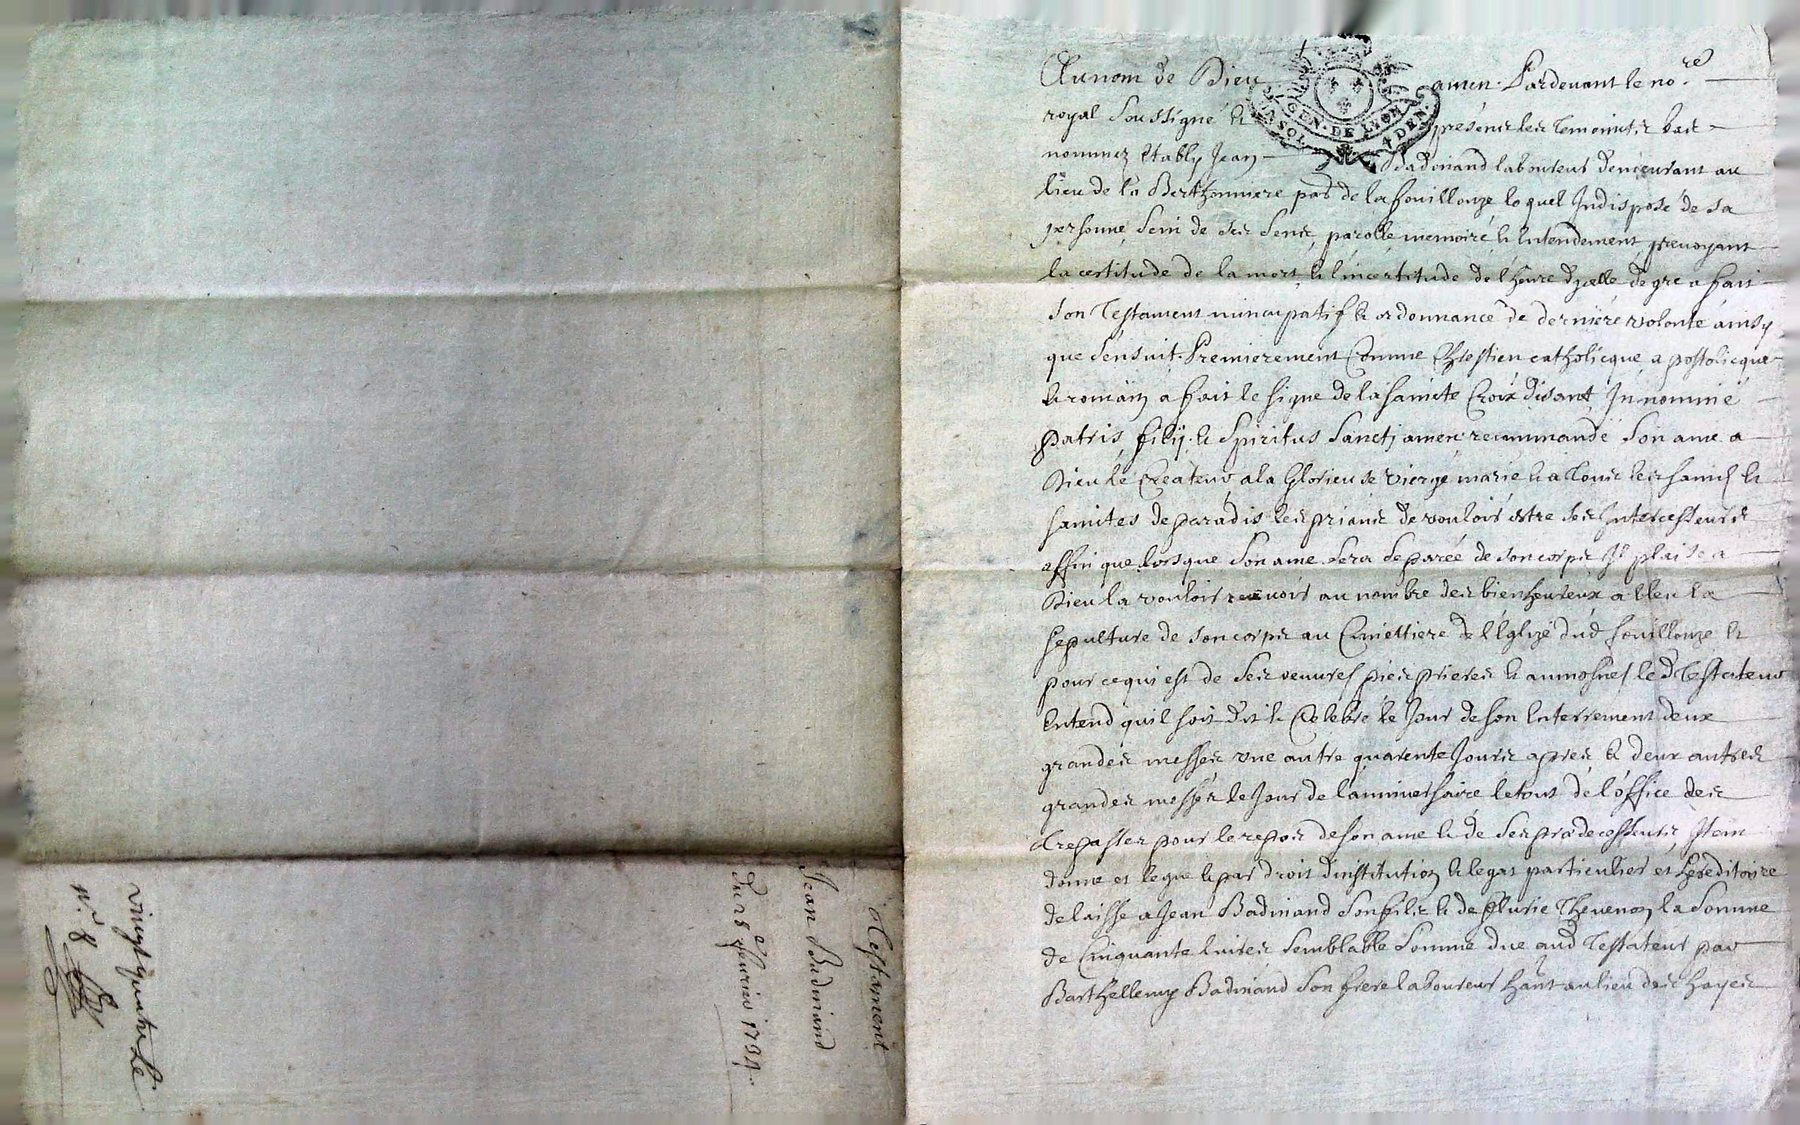 Au nom de Dieu amen. Pardevant le no.re
royal soussigné et présens les temointz bas
nommez etably Jean Badinand laboureur demeurant au
lieu de la Berthonniere par de la fouillouze lequel Indisposé de sa
personne sein de ses sens, parolle memoire et Entendement prevoyant
la certitude de la mort et l'incertitude de l'heure d'ycelle de gré a fait
son Testament nuncupatif et ordonnance de derniere volonté ainsy
que s'ensuit. Premierement Comme Chrestien catholicque, apostolicque
et romain a fait le signe de la sainte Croix disant In nomine
patris, filij. et Spiritus Sancti amen recommandé son ame a
Dieu le Createur a la Glorieuse vierge marie et a tous les saints et
saintes de paradis les priant de vouloir estre ses Intercesseurs
affin que lorsque son ame sera separée de son corps Il plaise a
Dieu la vouloir recevoir au nombre des bienheureux a Eleu la
sepulture de son corps au Cimettiere de l'Eglize dud fouillouze et
pour ce qui est de ses oeuvres pies prieres et aumosnes le d Testateur
Entend qu'il soit dit et Celebré le Jour de son Enterrement deux
grandes messes une autre quarente Jours apres et deux autres
grandes messes le Jour de l'anniversaire le tout de l'office des
trepassez pour le repos de son ame et de ses predecesseurs Item
donne et legue et par droit d'institution et legat particulier et hereditaire
delaisse a Jean Badinand son fils et de Thevenon la somme
de Cinquante livres semblable somme due aud Testateur par
Barthellemy Badinand son frere laboureur hant au lieu des hayes
Testament
Jean Badinand
du 28e fevrier
vingt quatre
n.o 8
GEN. DE LYON